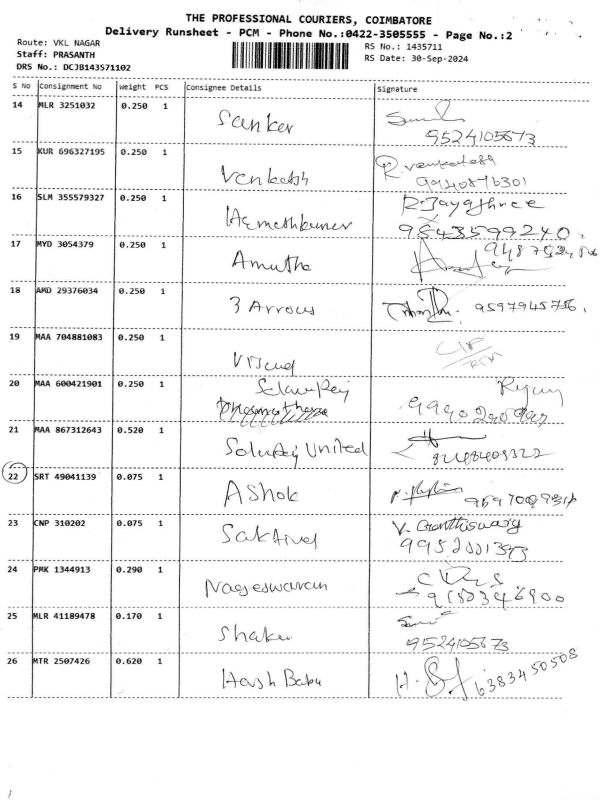 THE PROFESSIONAL COURIERS, COIMBATORE
Delivery Runsheet - PCM - Phone No.:0422-3505555 - Page No.:2
Route: VKL NAGAR
RS No.: 1435711
Staff: PRASANTH
RS Date: 30-Sep-2024
DRS No.: DCJB143571102
S No Consignment No Weight PCS Consignee Details Signature
14 MLR 3251032 0.250 1 Sanker
9524105673
15 KUR 696327195 0.250 1 Venkatsh R. Venkatesh
9940876301
16 SLM 355579327 0.250 1 Hemethkumer R. Jayashree
9543599240.
17 MYD 3054379 0.250 1 Amutha
18 AMD 29376034 0.250 1 3 Arrows 9597945756.
19 MAA 704881083 0.250 1
20 MAA 600421901 0.250 1
21 MAA 867312643 0.520 1 United
8248409322
22 SRT 49041139 0.075 1 Ashok
23 CNP 310202 0.075 1 Saktivel V.
9952001393
24 PMK 1344913 0.290 1 Nageswaran
25 MLR 41189478 0.170 1 Shaker
9524105673
26 MTR 2507426 0.620 1 Harsh Babu H. 6383450508